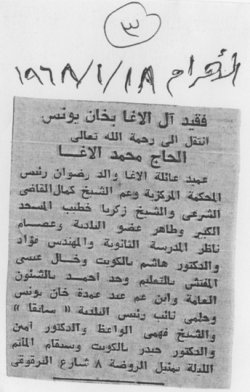 ٣
الأهرام ١٩٦٨/١/١٨
فقيد آل الاغا بخان يونس
انتقل الى رحمة الله تعالى
الحاج محمد الاغا
عميد عائلة الاغا ووالد رضوان رئيس
المحكمة المركزية وعم الشيخ كمال القاضى
الشرعى والشيخ زكريا خطيب المسجد
الكبير وطاهر عضو البلدية وعصام
ناظر المدرسة الثانوية والمهندس فؤاد
والدكتور هاشم بالكويت وخال عيسى
المفتش بالتعليم وجد احمد بالشئون
العامة وابن عم عبد عمدة خان يونس
وحلمى نائب رئيس البلدية « سابقا »
والشيخ فهمى الواعظ والدكتور امين
والدكتور حيدر بالكويت وسيقام المأتم
الليلة بمنيل الروضة ٨ شارع الترقوقى